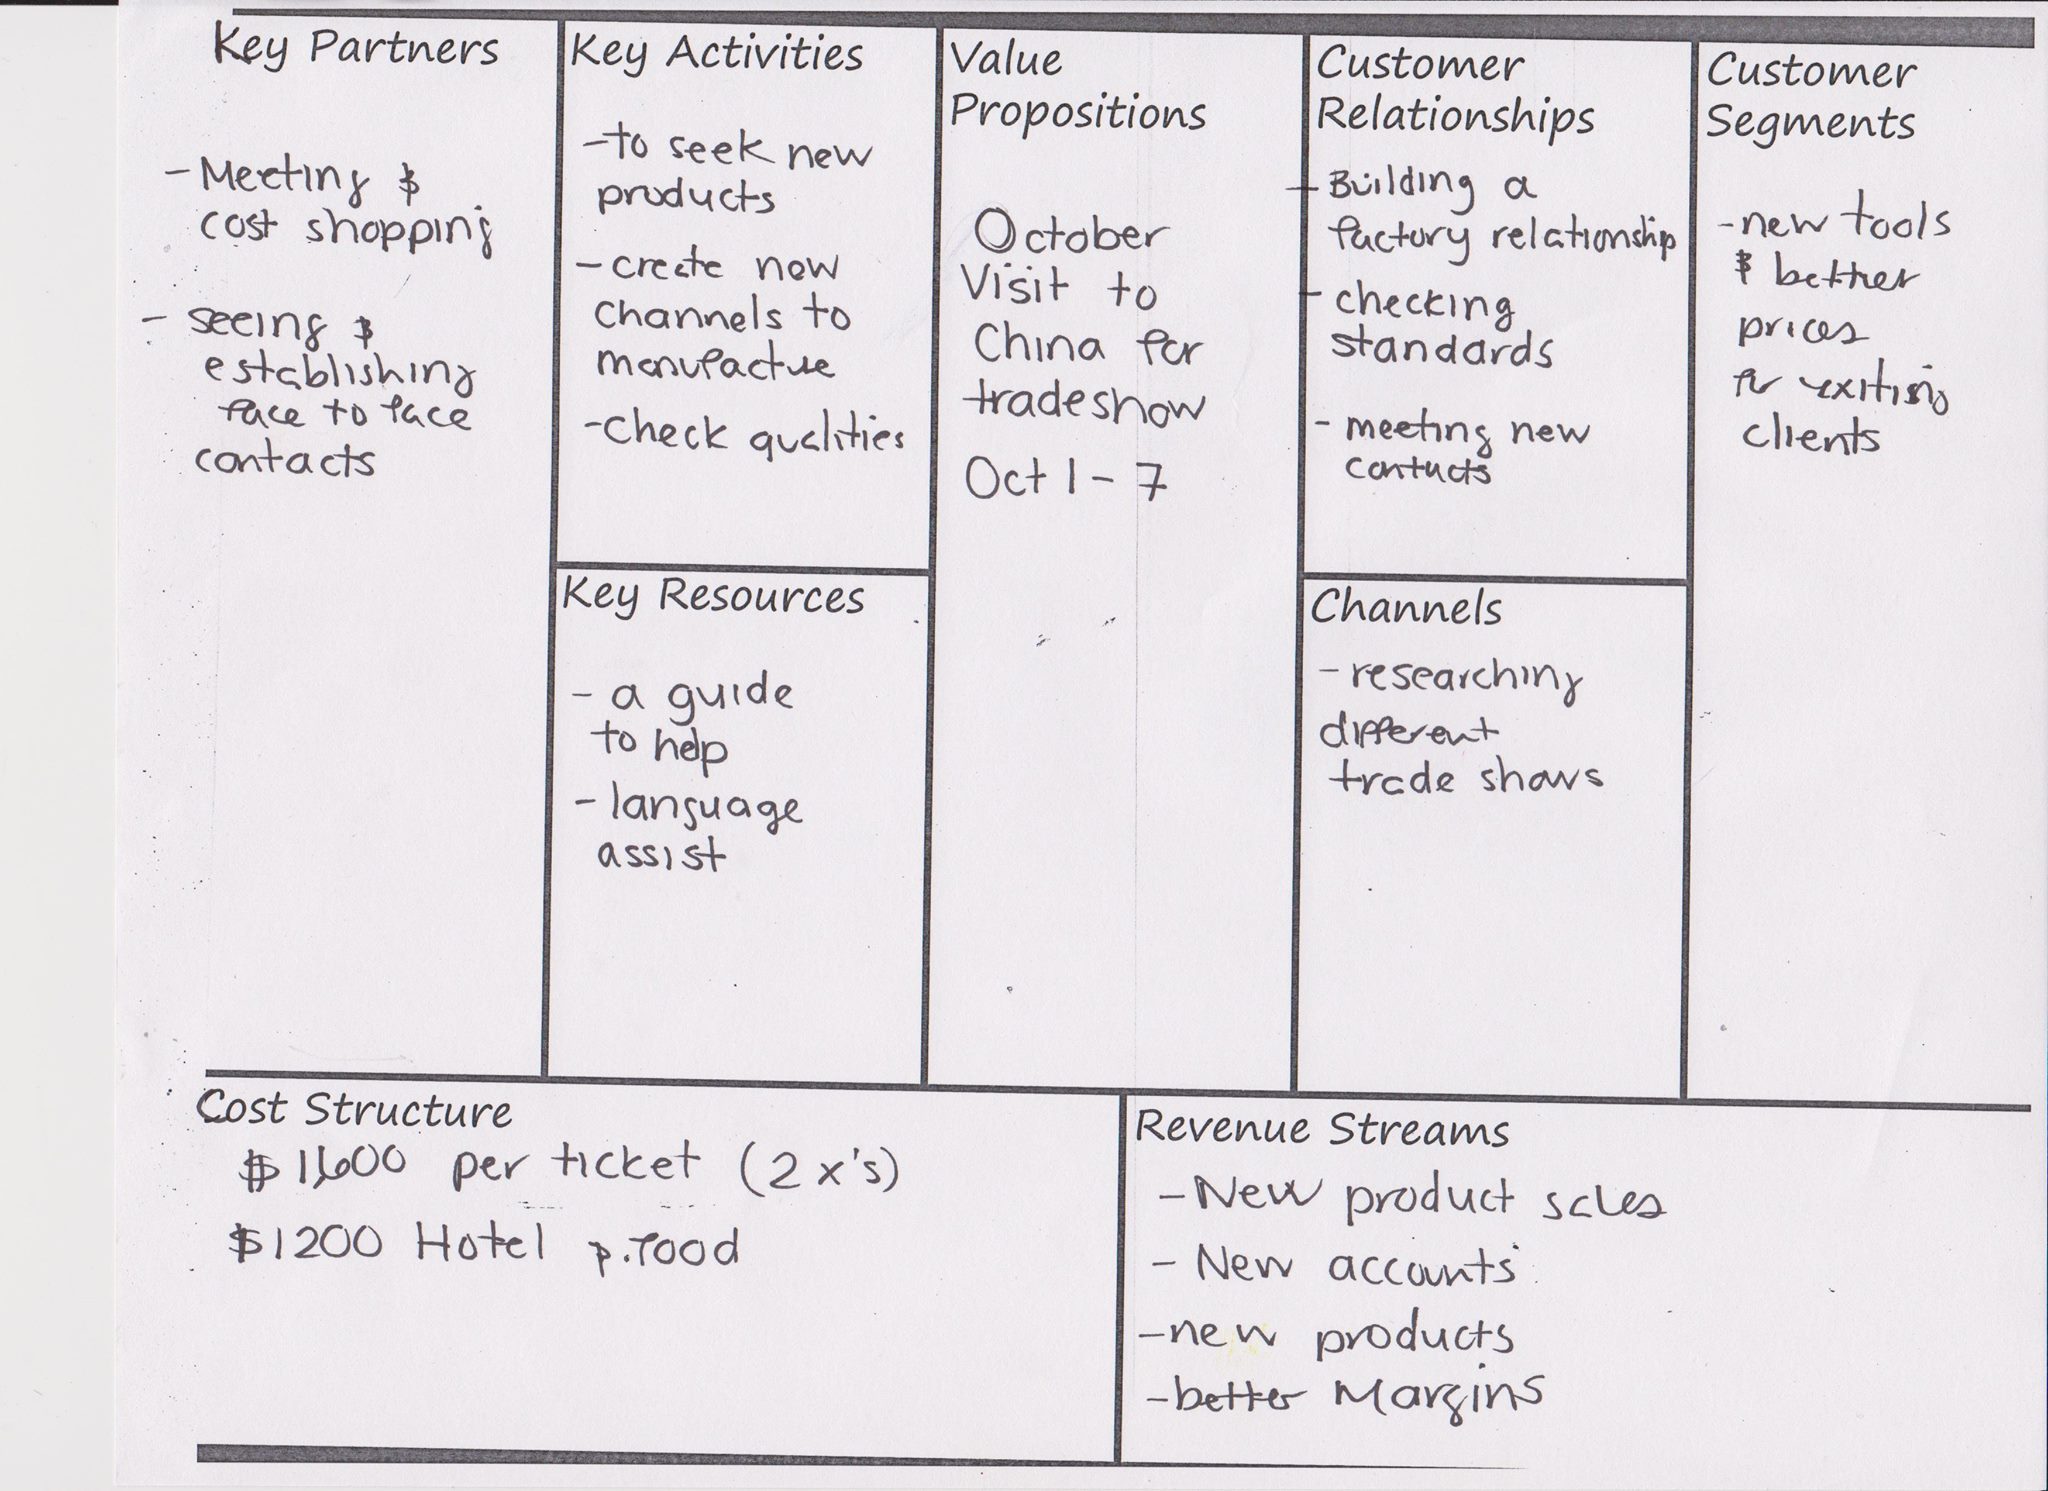 Key Partners
- Meeting $
cost shopping
- seeing $
establishing
face to face
contacts
Key Activities
- to seek new
products
- create new
channels to
manufactue
- Check qualities
Key Resources
- a guide
to help
- language
assist
Value
Propositions
October
Visit to
China for
tradeshow
Oct 1 - 7
Customer
Relationships
- Building a
factory relationship
- checking
standards
- meeting new
contacts
Channels
- researching
different
trade shows
Customer
Segments
- new tools
$ better
prices
for
clients
Cost Structure
$1,600 per ticket (2 x's)
$1200 Hotel
Revenue Streams
- New product sales
- New accounts
- new products
- better Margins